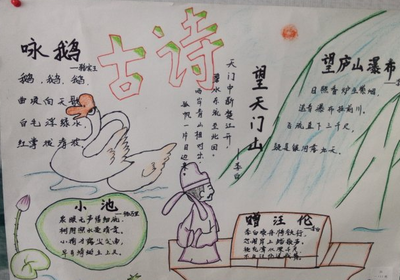 古诗
咏鹅
—骆宾王
鹅、鹅、鹅
曲项向天歌
白毛浮绿水
红掌拨清波
望天门山
—李白
天门中断楚江开
碧水东流至此回
两岸青山相对出
孤帆一片日边来
望庐山瀑布
日照香炉生紫烟
遥看瀑布挂前川
飞流直下三千尺
疑是银河落九天
小池
—杨万里
泉眼无声惜细流
树阴照水爱晴柔
小荷才露尖尖角
早有蜻蜓立上头
赠汪伦
—李白
李白乘舟将欲行
忽闻岸上踏歌声
桃花潭水深千尺
不及汪伦送我情